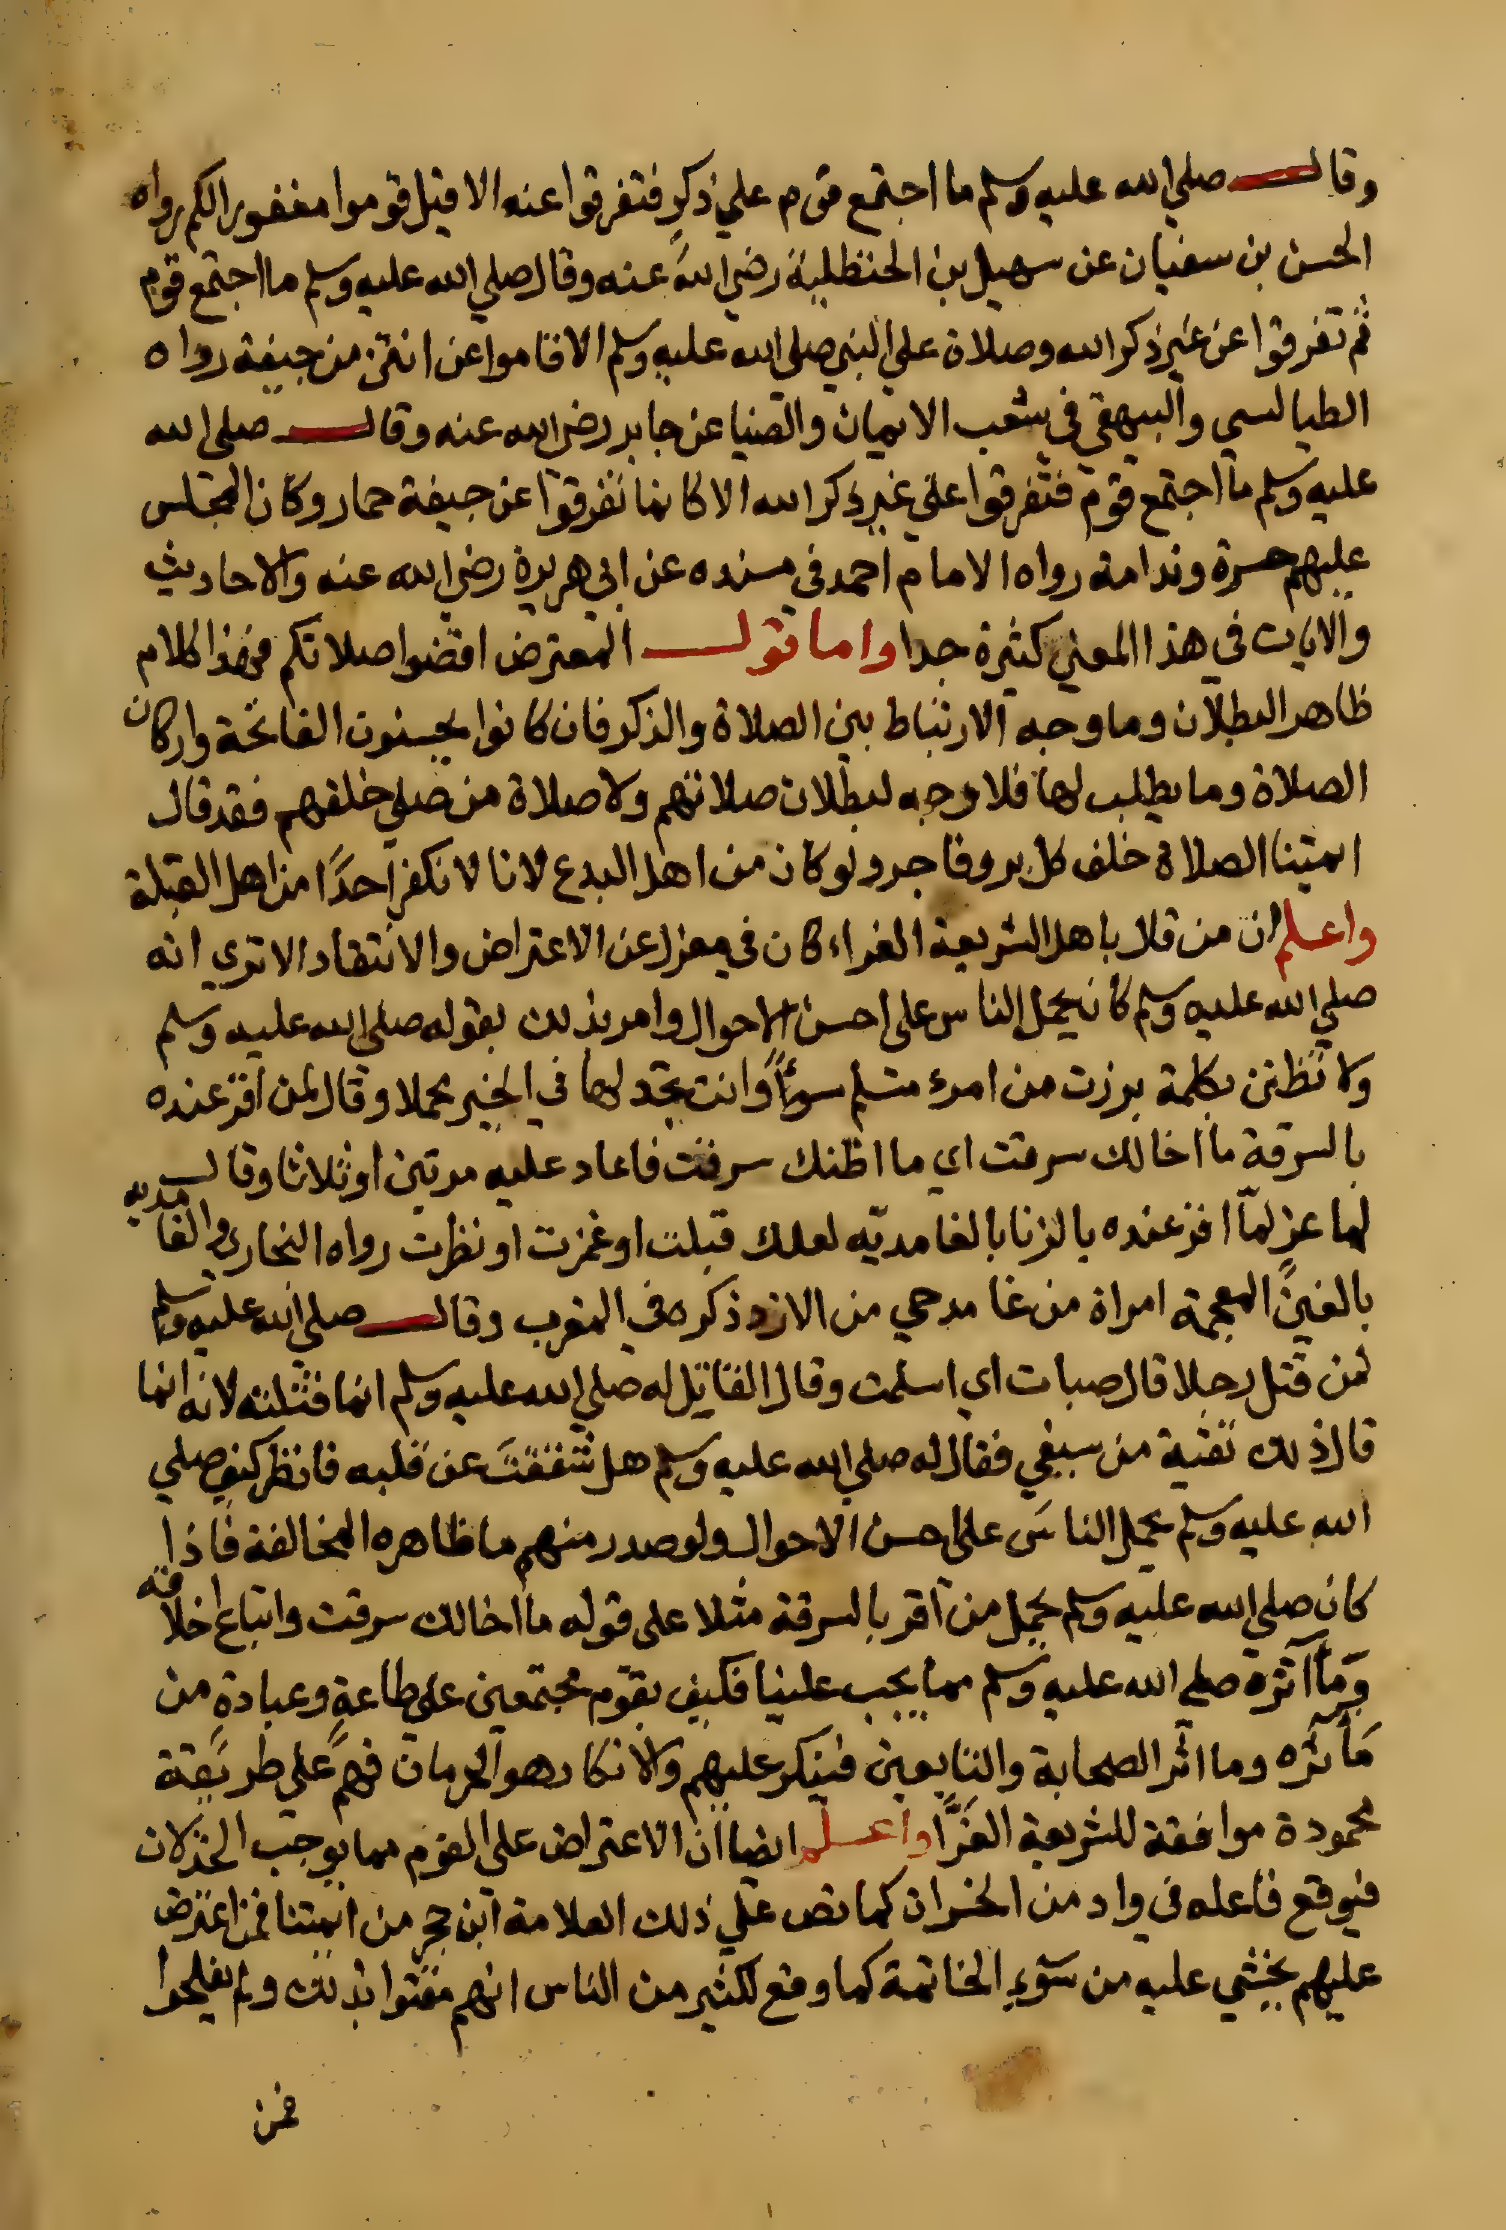 وقال صلي الله عليه وسلم ما اجتمع قوم علي ذكر فتفرقوا عنه الا قيل قوموا مغفورا لكم رواه
الحسن بن سفيان عن سهيل بن الحنظلية رضي الله عنه وقال صلي الله عليه وسلم ما اجتمع قوم
ثم تفرقوا عن غير ذكر الله وصلاة علي النبي صلي الله عليه وسلم الا قاموا عن انتن من جيفة رواه
الطيالسي والبيهقي في شعب الايمان والضيا عن جابر رضي الله عنه وقال صلي الله
عليه وسلم ما اجتمع قوم فتفرقوا علي غير ذكر الله الا كانما تفرقوا عن جيفة حمار وكان المجلس
عليهم حسرة وندامة رواه الامام احمد في مسنده عن ابي هريرة رضي الله عنه والاحاديث
والايات في هذا المعني كثيرة جدا واما قول المعترض اقضوا صلاتكم فهذا كلام
ظاهر البطلان وما وجه الارتباط بين الصلاة والذكر فان كانوا يحسنون الفاتحة واركان
الصلاة وما يطلب لها فلا وجه لبطلان صلاتهم ولا صلاة من صلي خلفهم فقد قال
ايمتنا الصلاة خلف كل بر وفاجر ولو كان من اهل البدع لانا لا نكفر احدا من اهل القبلة
واعلم ان من قلا باهل الشريعة الغراء كان في معزل عن الاعتراض والانتقاد الا تري انه
صلي الله عليه وسلم كان يحمل الناس علي احسن الاحوال وامر بذلك بقوله صلي الله عليه وسلم
ولا تظنن بكلمة برزت من امرء مسلم سوأً وانت تجد لها في الخير محملا وقال لمن اقر عنده
بالسرقة ما اخالك سرقت اي ما اظنك سرقت فاعاد عليه مرتين او ثلاثا وقال
لماعز لمّا اقر عنده بالزنا بالغامديّه لعلك قبلت او غمزت او نظرت رواه البخاري والغامديه
بالغين المعجمة امراة من غامد حي من الازد ذكره في المغرب وقال صلي الله عليه وسلم
لمن قتل رجلا قال صبات اي اسلمت وقال القاتل له صلي الله عليه وسلم انما قتلته لانه انما
قال ذلك تقية من سيفي فقال له صلي الله عليه وسلم هل شققت عن قلبه فانظر كيف صلي
الله عليه وسلم يحمل الناس علي احسن الاحوال ولو صدر منهم ما ظاهره المخالفة فاذا
كان صلي الله عليه وسلم يحمل من اقر بالسرقة مثلا علي قوله ما اخالك سرقت واتباع اخلاقه
وما آثره صلي الله عليه وسلم مما يجب علينا فكيف بقوم مجتمعين علي طاعة وعبادة من
مأثره وما اثر الصحابة والتابعين فينكر عليهم والانكار هو الحرمان فهم علي طريقة
محمودة موافقة للشريعة الغرّا واعلم ايضا ان الاعتراض علي القوم مما يوجب الخذلان
فيوقع فاعله في واد من الخسران كما نص علي ذلك العلامة ابن حجر من ايمتنا فمن اعترض
عليهم يخشي عليه من سوء الخاتمة كما وقع لكثير من الناس انهم مقتوا بذلك ولم يفلحوا
فمن